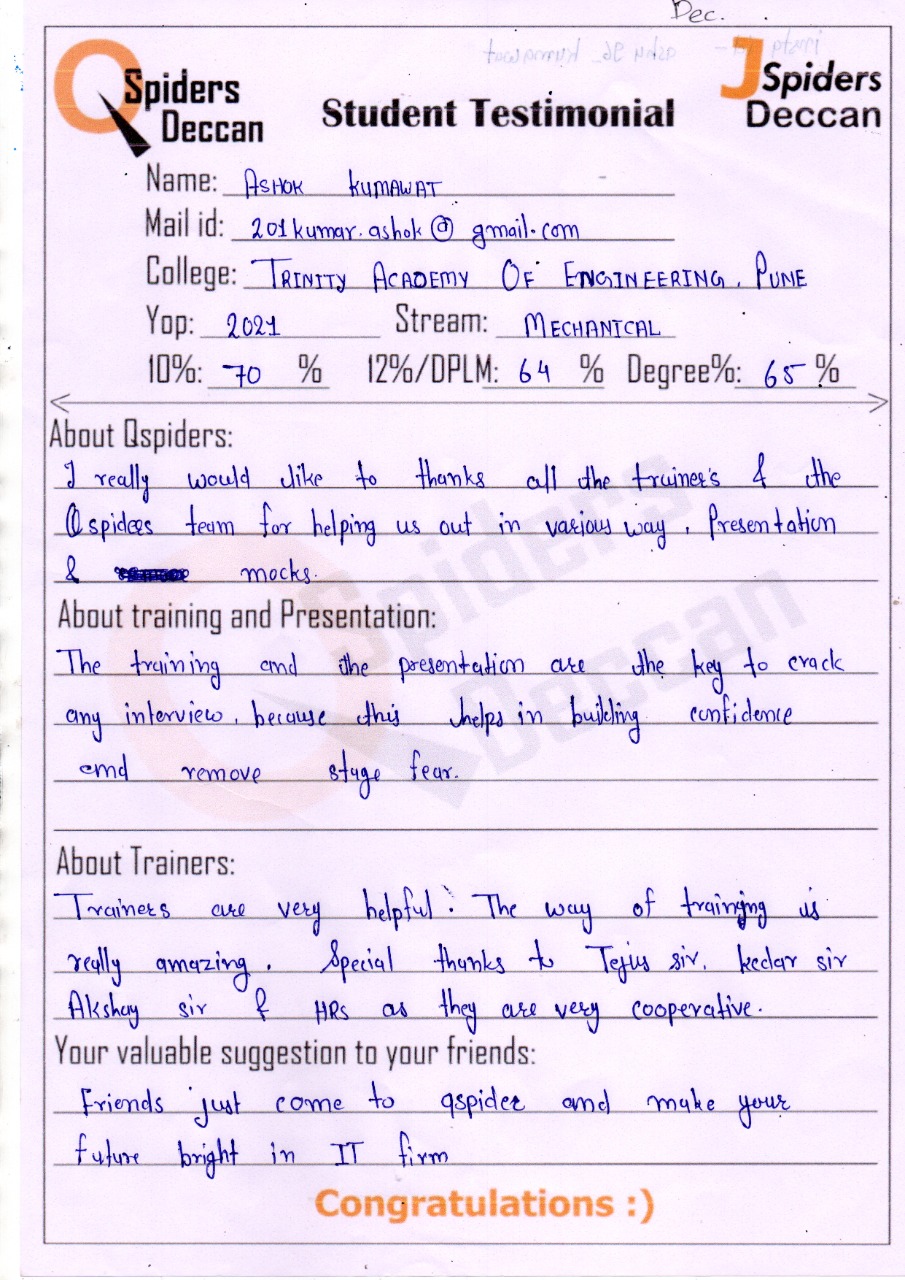 Dec.
QSpiders
Deccan
Student Testimonial
JSpiders
Deccan
Name: ASHOK KUMAWAT
Mail id: 201kumar.ashok@gmail.com
College: TRINITY ACADEMY OF ENGINEERING, PUNE
Yop: 2021 Stream: MECHANICAL
10%: 70 % 12%/DPLM: 64 % Degree%: 65 %
About Qspiders:
I really would like to thanks all the trainer's & the
Qspiders team for helping us out in various way, Presentation
& mocks.
About training and Presentation:
The training and the presentation are the key to crack
any interview, because this helps in building confidence
and remove stage fear.
About Trainers:
Trainers are very helpful. The way of training is
really amazing. Special thanks to Tejus sir, kedar sir
Akshay sir & HRs as they are very cooperative.
Your valuable suggestion to your friends:
Friends just come to qspider and make your
future bright in IT firm
Congratulations :)